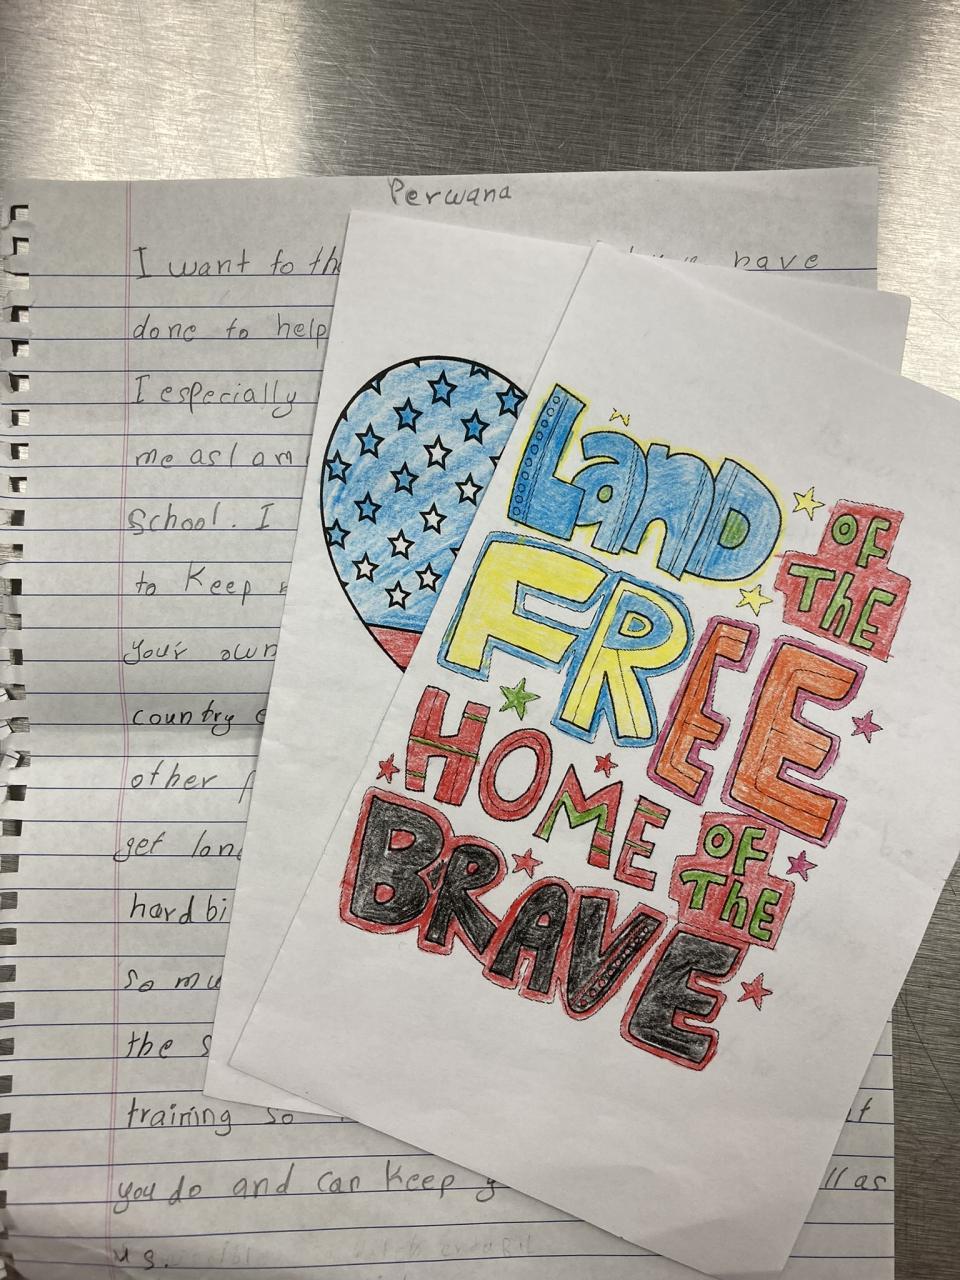 Perwana
I want to have
done to help
I especially
me as I am
school. I
to Keep
your own
country
other
get
hard
so
the
training so
you do and can Keep as
us.
LAND
OF
ThE
FREE
HOME
OF
ThE
BRAVE